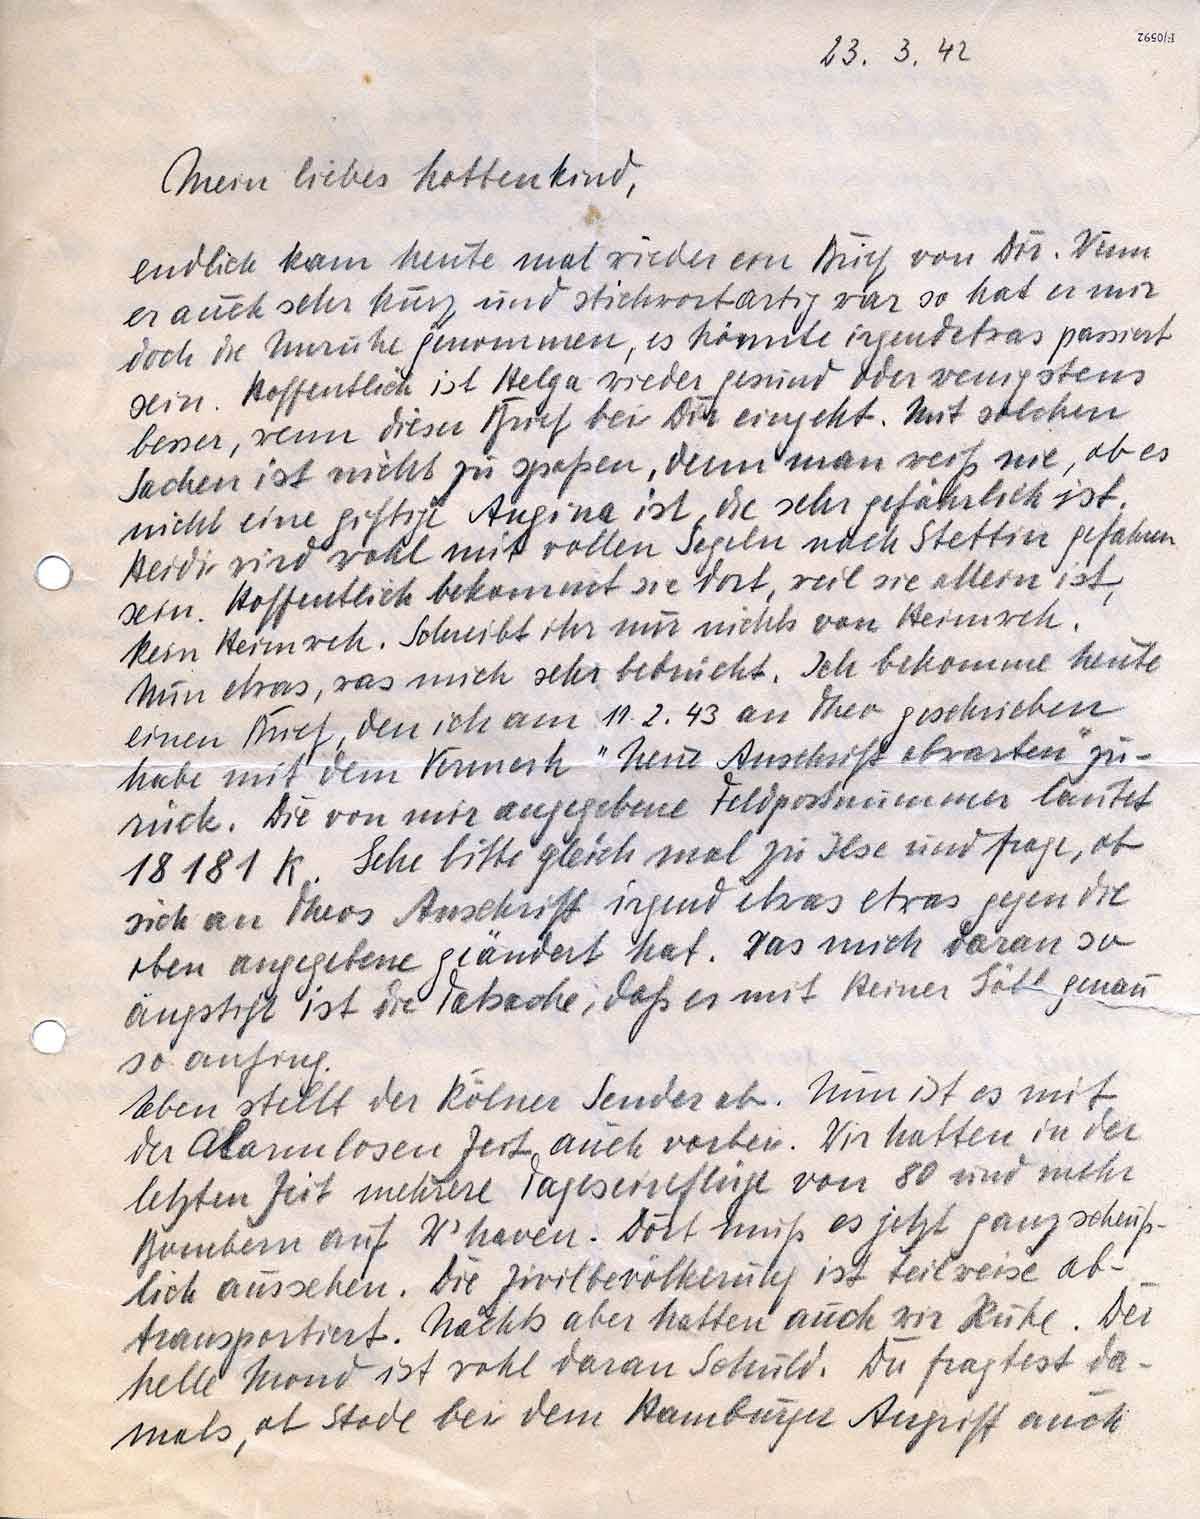 F/0592
23. 3. 42
Mein liebes Hottenkind,
endlich kam heute mal wieder ein Brief von Dir. Wenn
er auch sehr kurz und stichwortartig war so hat er mir
doch die Unruhe genommen, es könnte irgendetwas passiert
sein. Hoffentlich ist Helga wieder gesund oder wenigstens
besser, wenn dieser Brief bei Dir eingeht. Mit solchen
Sachen ist nicht zu spaßen, denn man weiß nie, ob es
nicht eine giftige Angina ist, die sehr gefährlich ist.
Heidi wird wohl mit vollen Segeln nach Stettin gefahren
sein. Hoffentlich bekommt sie dort, weil sie allein ist,
kein Heimweh. Schreibt ihr nur nichts von Heimweh.
Nun etwas, was mich sehr bedrückt. Ich bekomme heute
einen Brief, den ich am 11. 2. 43 an Theo geschrieben
habe mit dem Vermerk "Neue Anschrift abwarten" zu-
rück. Die von mir angegebene Feldpostnummer lautet
18 181 K. Gehe bitte gleich mal zu Ilse und frage, ob
sich an Theos Anschrift irgend etwas etwas gegen die
oben angegebene geändert hat. Was mich daran so
ängstigt ist die Tatsache, daß es mit Heiner genau
so anfing.
Eben stellt der Kölner Sender ab. Nun ist es mit
der Alarmlosen Zeit auch vorbei. Wir hatten in der
letzten Zeit mehrere Tageseinflüge von 80 und mehr
Bombern auf W'haven. Dort muß es jetzt ganz scheuß-
lich aussehen. Die Zivilbevölkerung ist teilweise ab-
transportiert. Nachts aber hatten auch wir Ruhe. Der
helle Mond ist wohl daran Schuld. Du fragtest da-
mals, ob Stade bei dem Hamburger Angriff auch